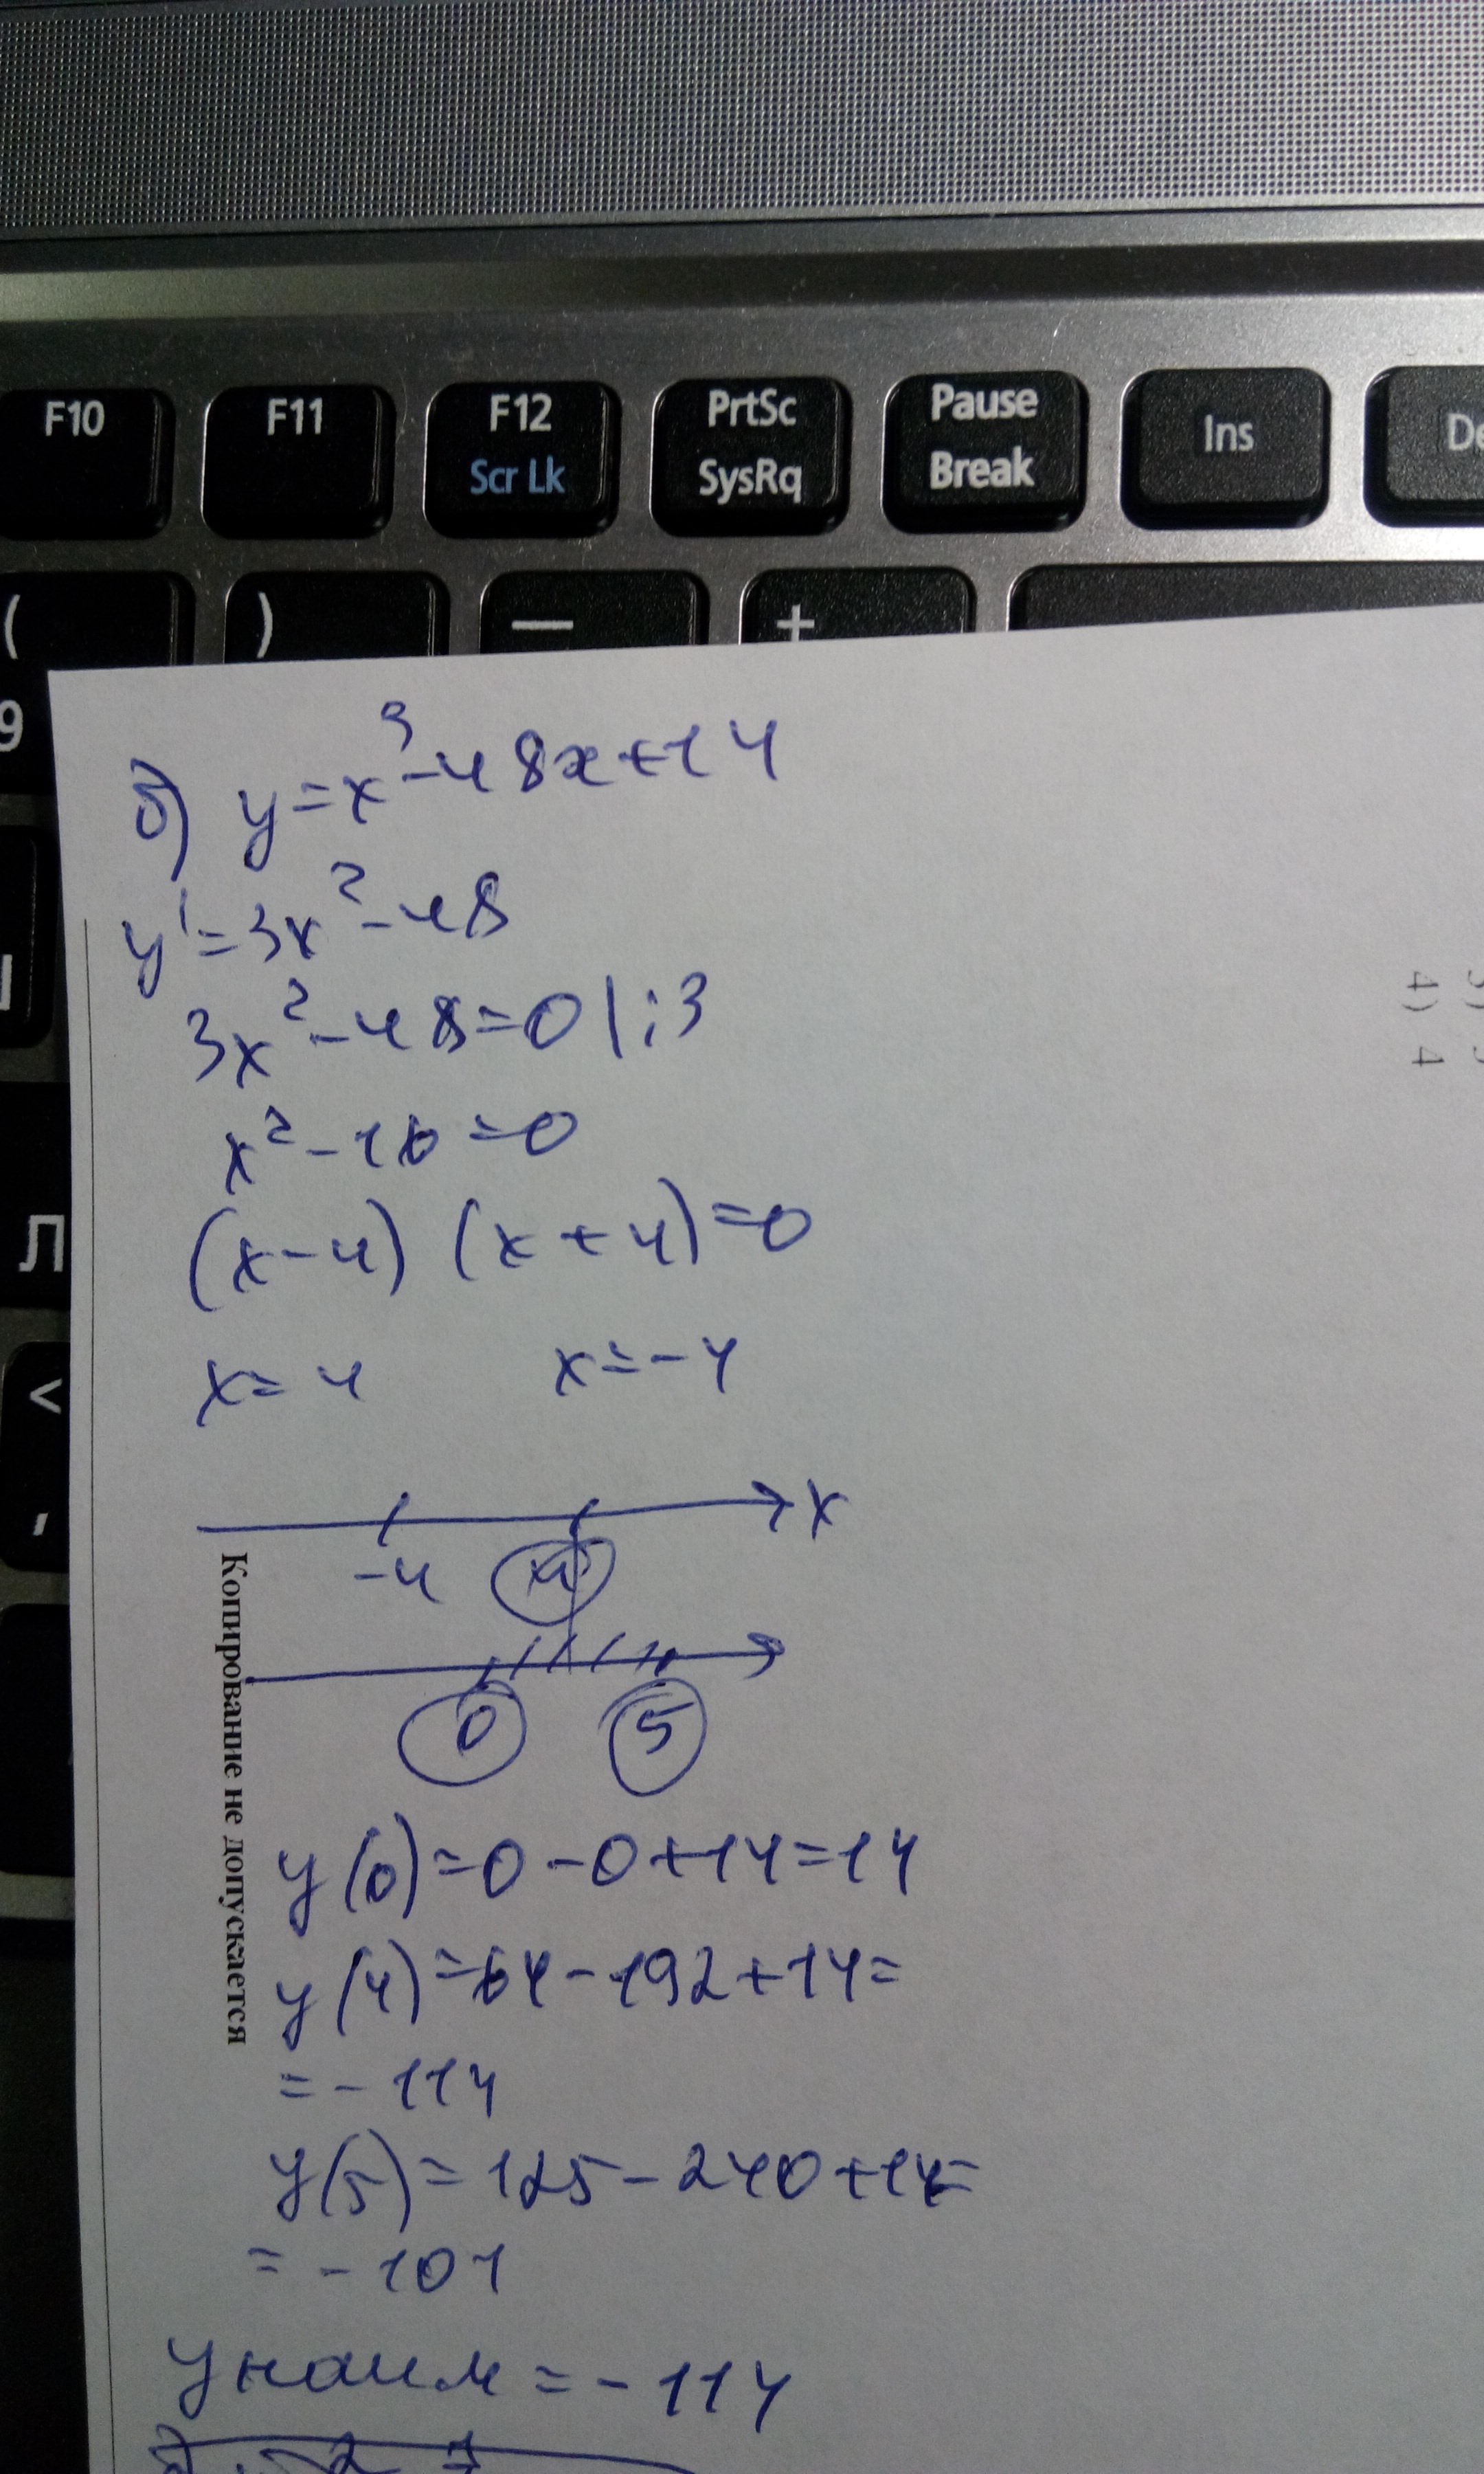 F10 F11 F12 PrtSc Pause Ins De
Scr Lk SysRq Break
( ) — +
9
б) y=x³-48x+14
y'=3x²-48
3x²-48=0 |:3
x²-16=0
(x-4) (x+4)=0
x=4 x=-4
x
-4 4
0 5
y(0)=0-0+14=14
y(4)=64-192+14=
=-114
y(5)=125-240+14=
=-101
yнаим=-114
Л
<
,
Копирование не допускается
4) 4